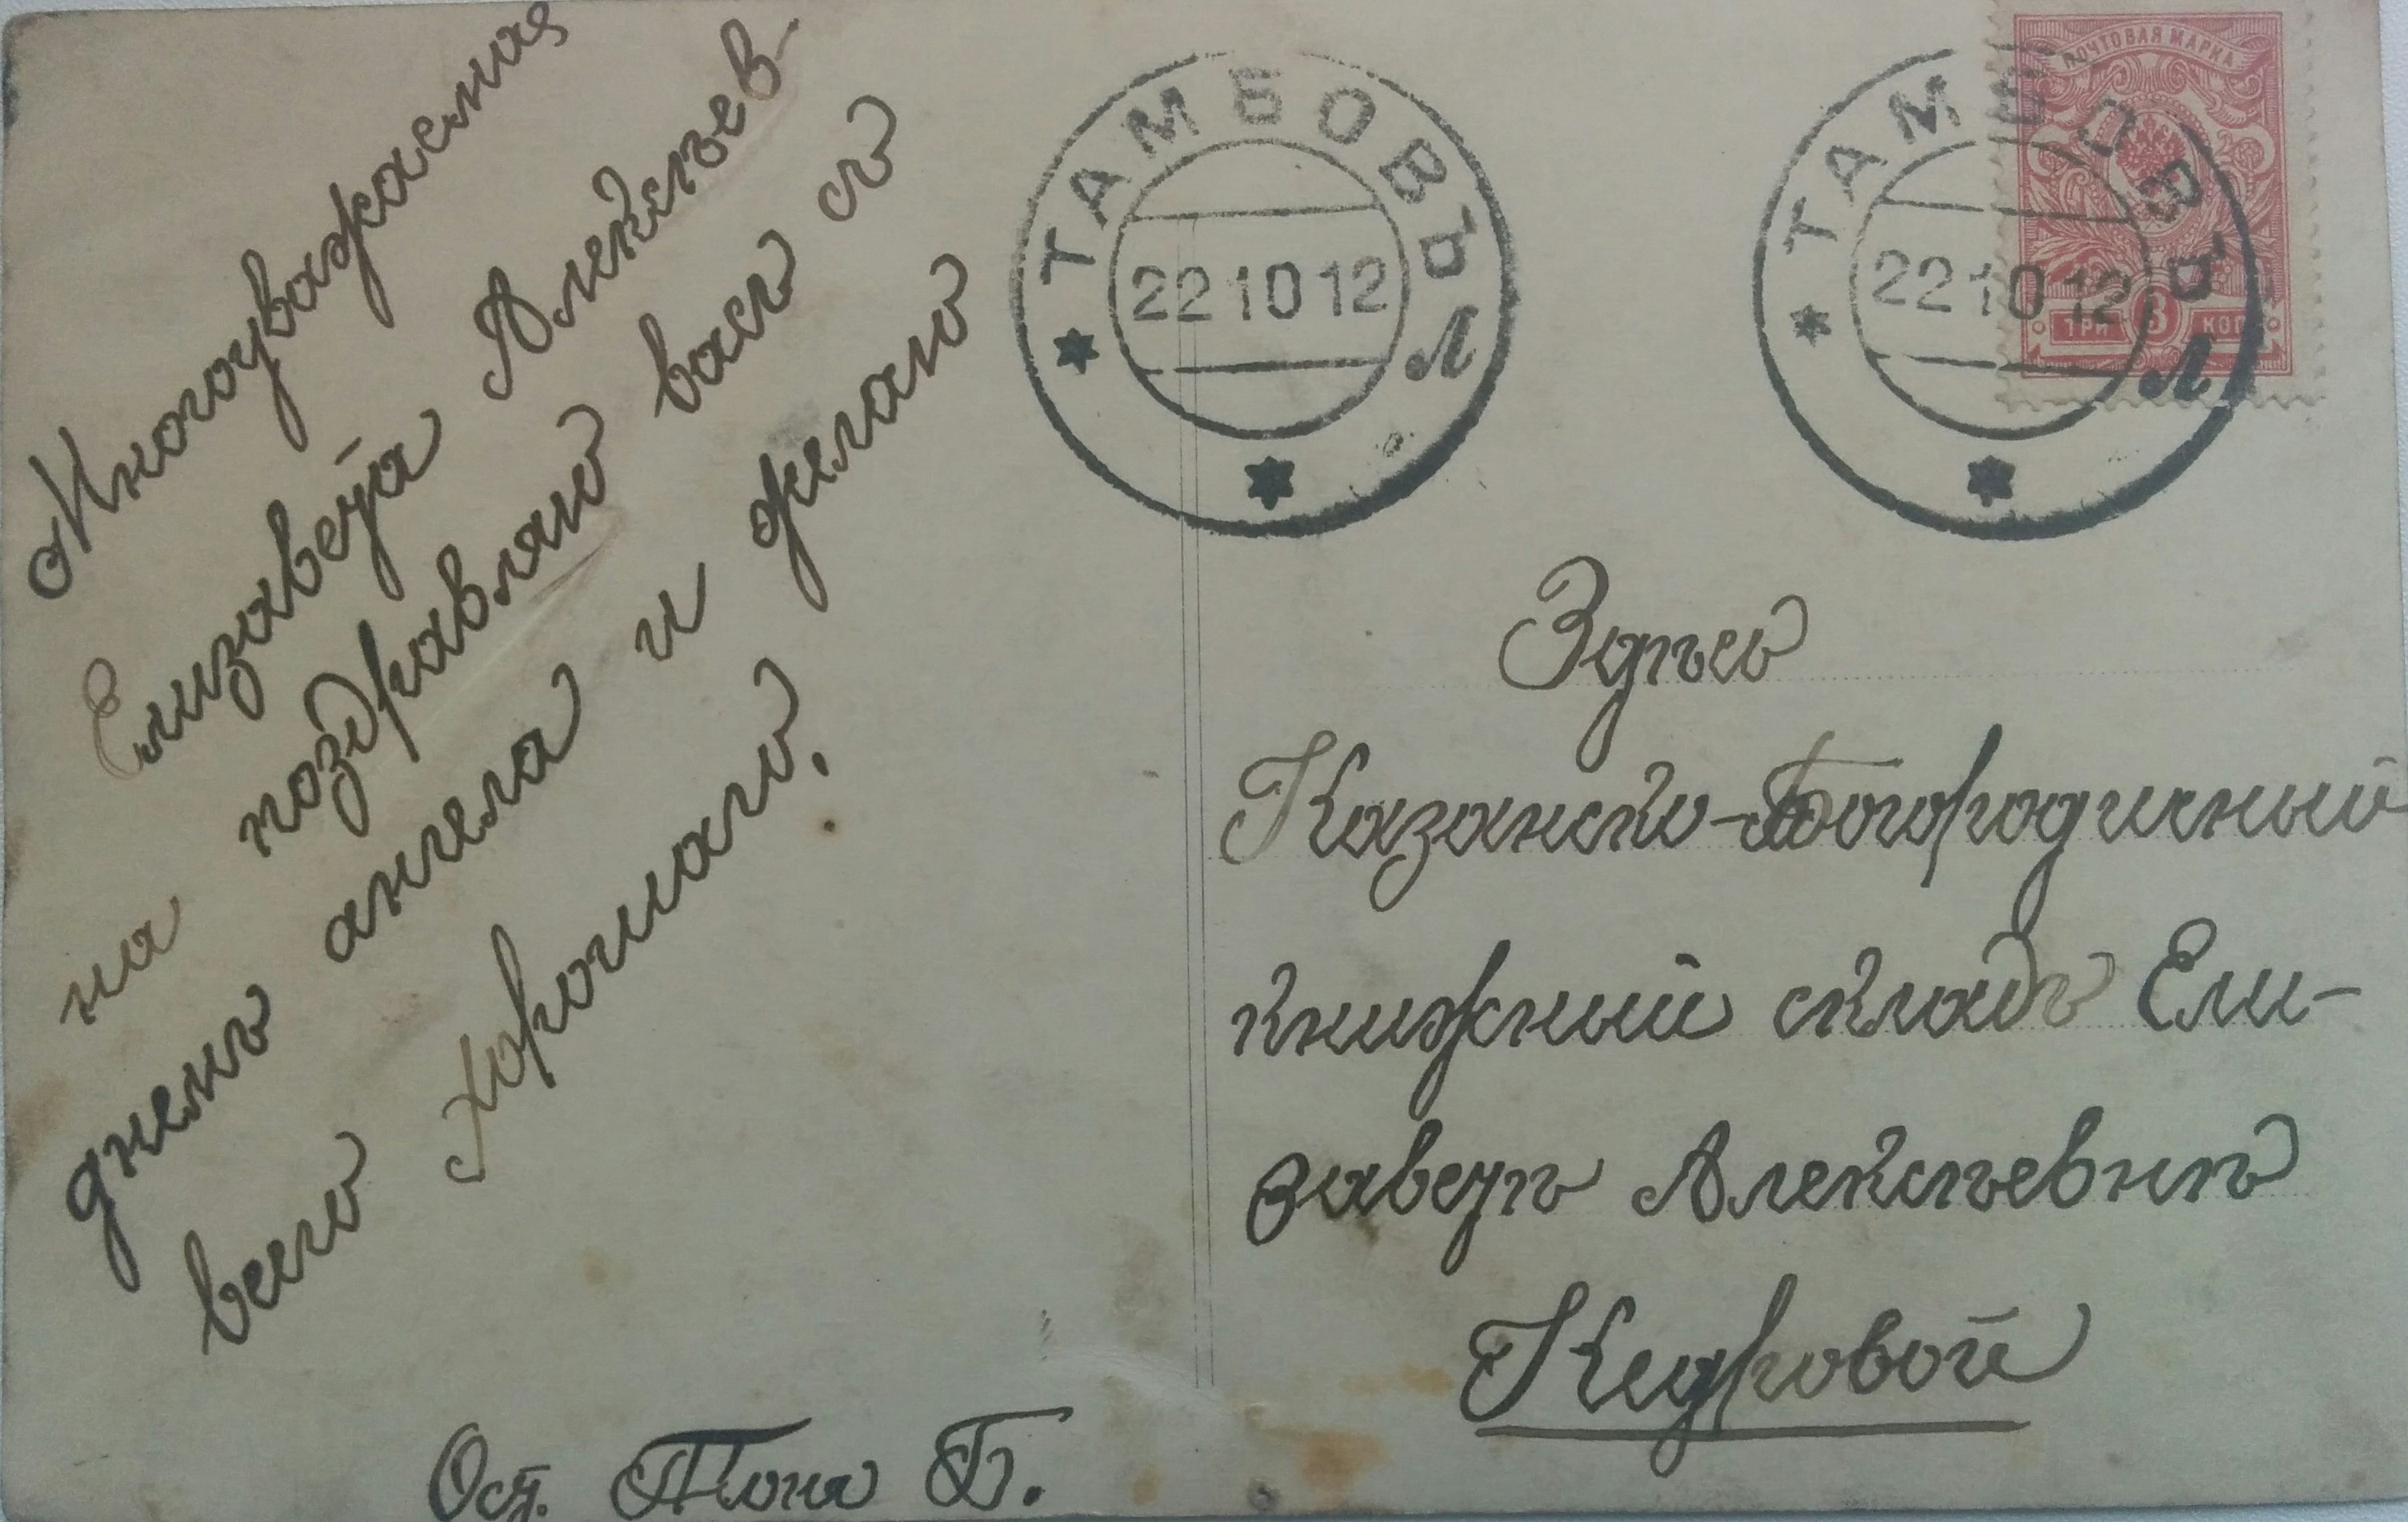 Многоуважаемая
Елизавета Алексѣев-
на поздравляю васъ съ
днемъ ангела и желаю
всего хорошаго.
Ост. Тоня Б.
ТАМБОВЪ
Л
22 10 12
ТАМБОВЪ
Л
22 10 12
ПОЧТОВАЯ МАРКА
ТРИ 3 КОП
Здѣсь
Казанско-Богородичный
книжный складъ Ели-
заветѣ Алексѣевнѣ
Кедровой